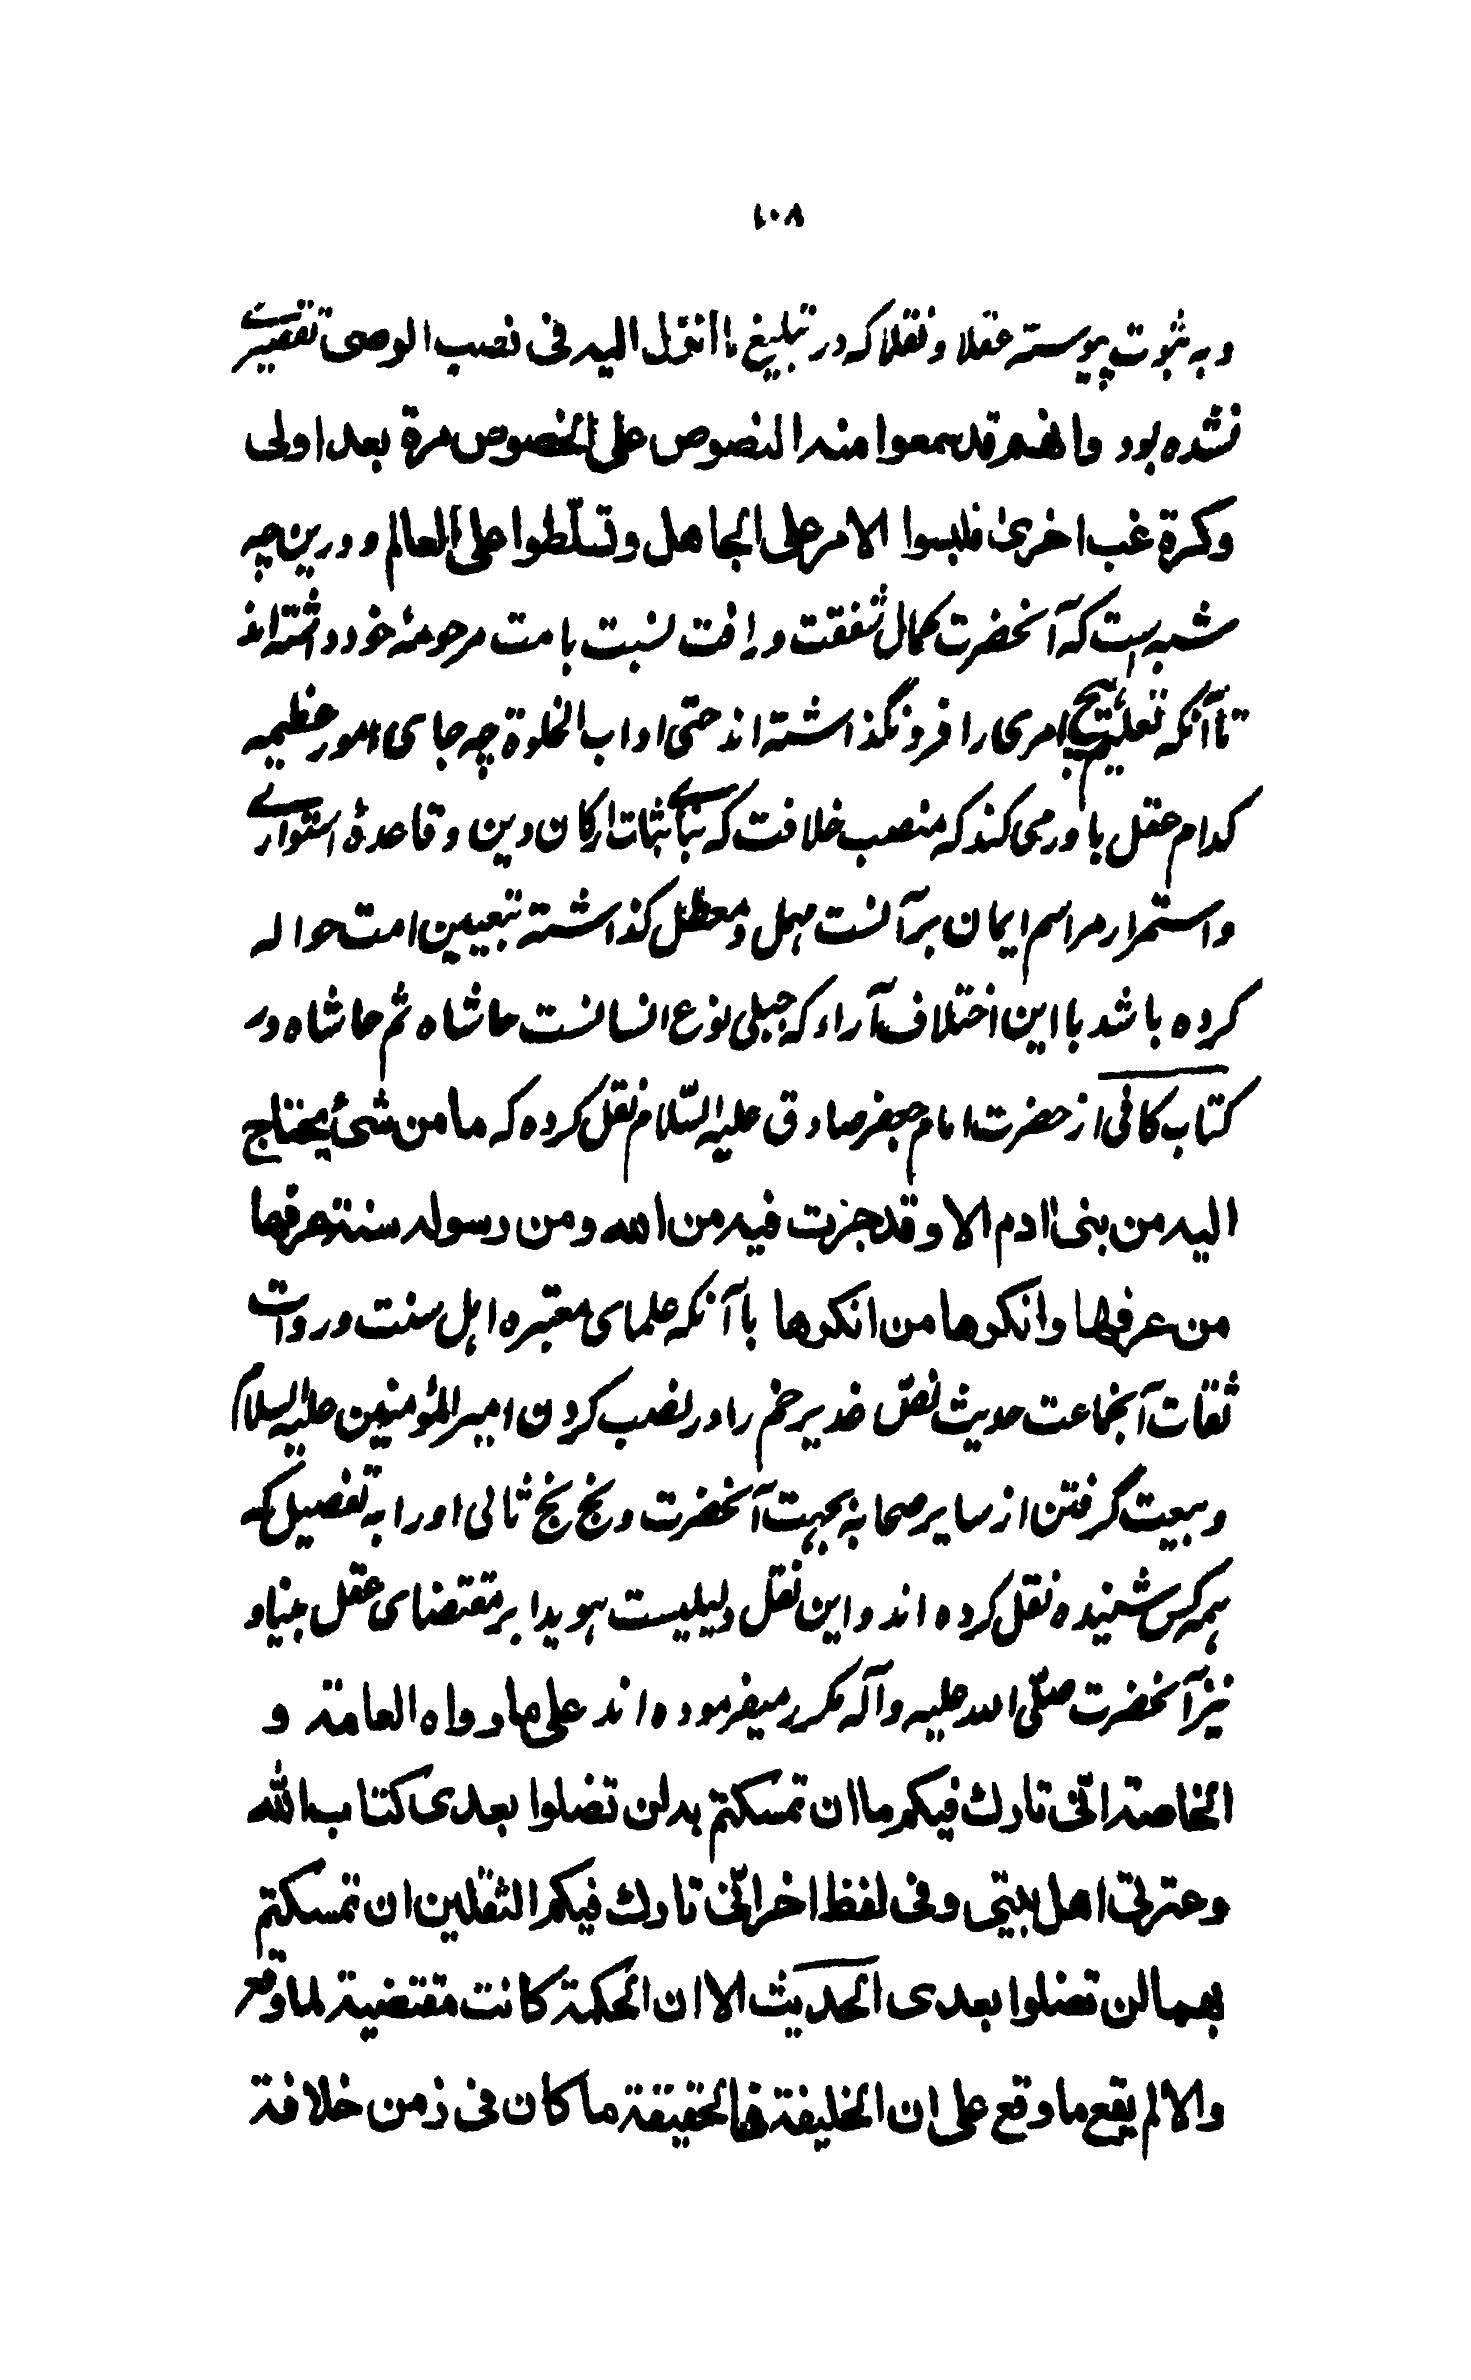 ١٠٨
و به ثبوت پیوسته عقلا و نقلا که در تبلیغ ما انزل الیه فی نصب الوصی تقصیرے
نشده بود وانهم قد سمعوا منه النصوص علی الخصوص مرة بعد اولی
وکرة غب اخری فلبسوا الامر علی الجاهل وتسلّطوا علی العالم و درین چه
شبهه است که آنحضرت کمال شفقت و رافت نسبت بامت مرحومهٔ خود داشته اند
تا آنکه تعلیم هیچ امری را فرونگذاشته اند حتی اداب الخلوة چه جای امور عظیمه
کدام عقل باور می کند که منصب خلافت که بنائے ثبات ارکان دین و قاعدهٔ استوارے
و استمرار مراسم ایمان بر آنست مهمل و معطل کذاشته بتعیین امت حواله
کرده باشد با این اختلاف آراء که جبلی نوع انسانست حاشاه ثم حاشاه در
کتاب کافی از حضرت امام جعفر صادق علیه السّلام نقل کرده که ما من شیٔ یحتاج
الیه من بنی ادم الا وقد جرت فیه من الله ومن رسوله سنة عرفها
من عرفها وانکرها من انکرها با آنکه علمای معتبره اهل سنت و روات
ثقات آنجماعت حدیث نصّ غدیر خم را در نصب کردن امیر المؤمنین علیه السلام
و بیعت گرفتن از سایر صحابه بجهت آنحضرت و بخ بخ ثانی او را به تفصیل که
همه کس شنیده نقل کرده اند و این نقل دلیلیست هویدا بر مقتضای عقل بنیاد
نیز آنحضرت صلّی الله علیه وآله مکرر میفرموده اند علی ما رواه العامة و
الخاصة انّی تارك فیکم ما ان تمسکتم به لن تضلوا بعدی کتاب الله
وعترتی اهل بیتی وفی لفظ اخر انّی تارك فیکم الثقلین ان تمسکتم
بهما لن تضلوا بعدی الحدیث الا ان الحکمة کانت مقتضیة لما وقع
والا لم یقع ما وقع علی ان الخلیفة فی الحقیقة ما کان فی زمن خلافة